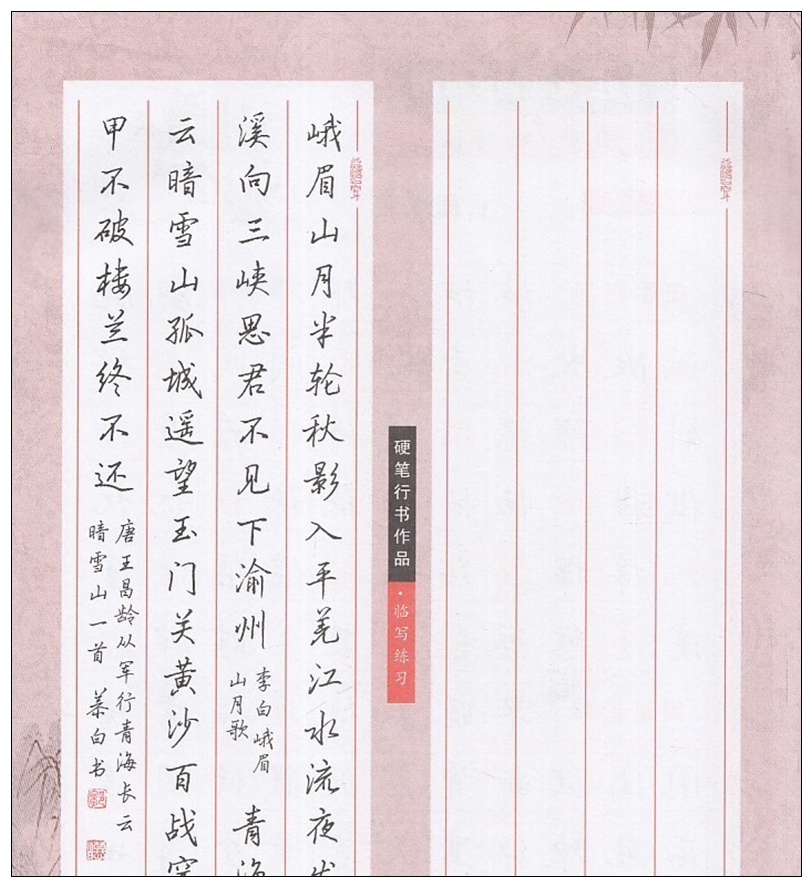 峨眉山月半轮秋影入平羌江水流夜发
溪向三峡思君不见下渝州
李白峨眉
山月歌
青海
云暗雪山孤城遥望玉门关黄沙百战穿
甲不破楼兰终不还
唐王昌龄从军行青海长云
暗雪山一首 慕白书
硬笔行书作品·临写练习